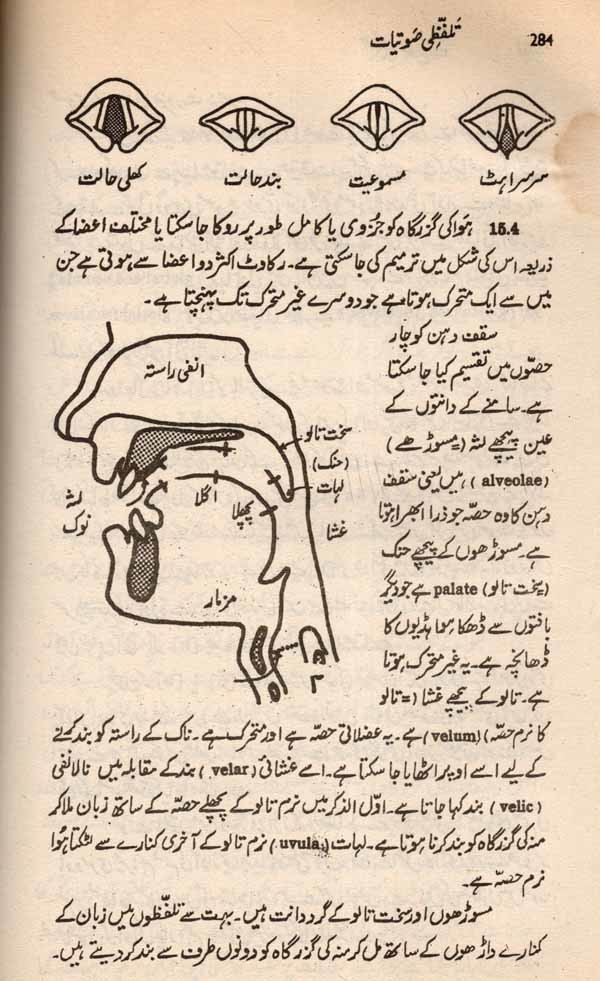 284
تلفّظی صوتیات
سرسراہٹ
مسموعیت
بند حالت
کھلی حالت
15.4 ہوا کی گزرگاہ کو جُزوی یا کامل طور پر روکا جا سکتا یا مختلف اعضا کے
ذریعہ اس کی شکل میں ترمیم کی جا سکتی ہے۔ رکاوٹ اکثر دو اعضا سے ہوتی ہے جن
میں سے ایک متحرک ہوتا ہے جو دوسرے غیر متحرک تک پہنچتا ہے۔
سقف دہن کو چار
حصّوں میں تقسیم کیا جا سکتا
ہے۔ سامنے کے دانتوں کے
عین پیچھے لثہ (= مسوڑھے)
(alveolae) ہیں یعنی سقف
دہن کا وہ حصّہ جو ذرا ابھرا ہوتا
ہے۔ مسوڑھوں کے پیچھے حنک
(= سخت تالو) palate ہے جو دیگر
بافتوں سے ڈھکا ہوا ہڈیوں کا
ڈھانچہ ہے۔ یہ غیر متحرک ہوتا
ہے۔ تالو کے پیچھے غشا (= تالو
انفی راستہ
سخت تالو
(حنک)
لہات
لثہ
نوک
اگلا
پچھلا
غشا
مزمار
کا نرم حصّہ) (velum) ہے۔ یہ عضلاتی حصّہ ہے اور متحرک ہے۔ ناک کے راستہ کو بند کرنے
کے لیے اسے اوپر اٹھایا جا سکتا ہے۔ اسے غشائی (velar) بند کے مقابلہ میں نالانفی
(velic) بند کہا جاتا ہے۔ اوّل الذکر میں نرم تالو کے پچھلے حصّہ کے ساتھ زبان ملا کر
منہ کی گزرگاہ کو بند کرنا ہوتا ہے۔ لہات (uvula) نرم تالو کے آخری کنارے سے لٹکتا ہُوا
نرم حصّہ ہے۔
مسوڑھوں اور سخت تالو کے گرد دانت ہیں۔ بہت سے تلفّظوں میں زبان کے
کنارے داڑھوں کے ساتھ مل کر منہ کی گزرگاہ کو دونوں طرف سے بند کر دیتے ہیں۔